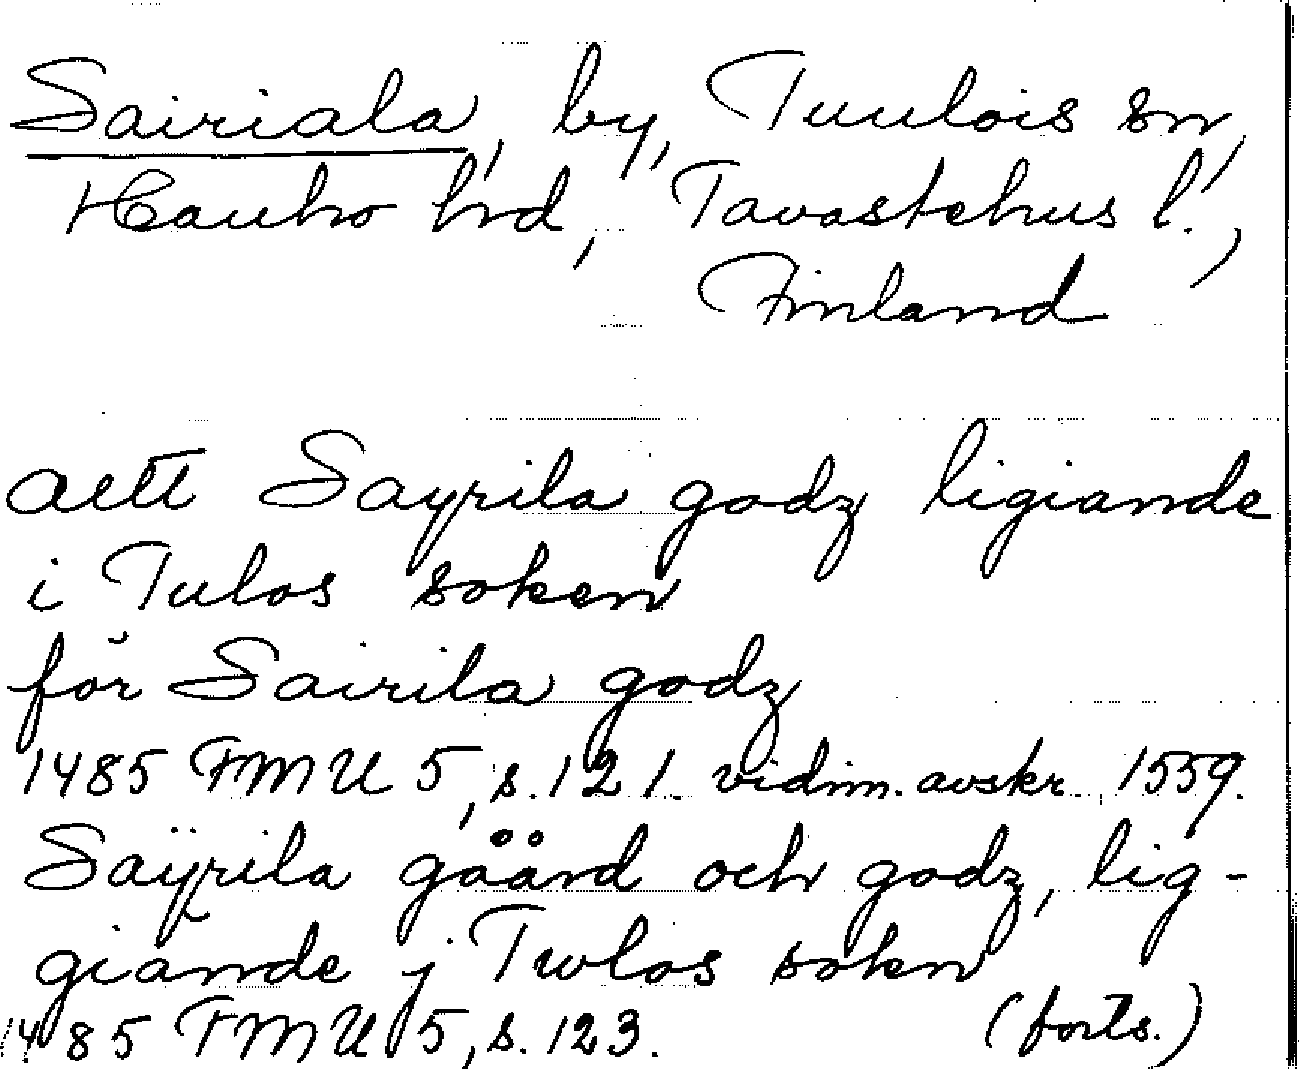 Sairiala, by, Tuulois sn,
Hauho hrd, Tavastehus l.,
Finland
aett Sayrila godz ligiande
i Tulos soken
för Sairila godz
1485 FMU 5, s. 121. vidim. avskr. 1559.
Saÿrila gåård och godz, lig-
giande j Twlos sokn
1485 FMU 5, s. 123. (forts.)